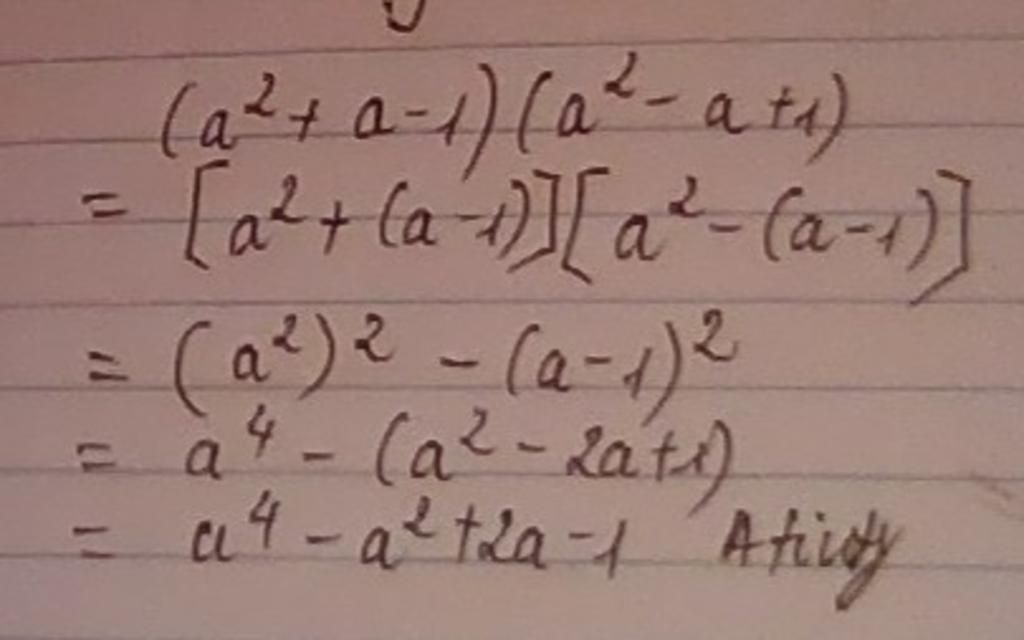 (a² + a - 1)(a² - a + 1)
= [a² + (a - 1)][a² - (a - 1)]
= (a²)² - (a - 1)²
= a⁴ - (a² - 2a + 1)
= a⁴ - a² + 2a - 1